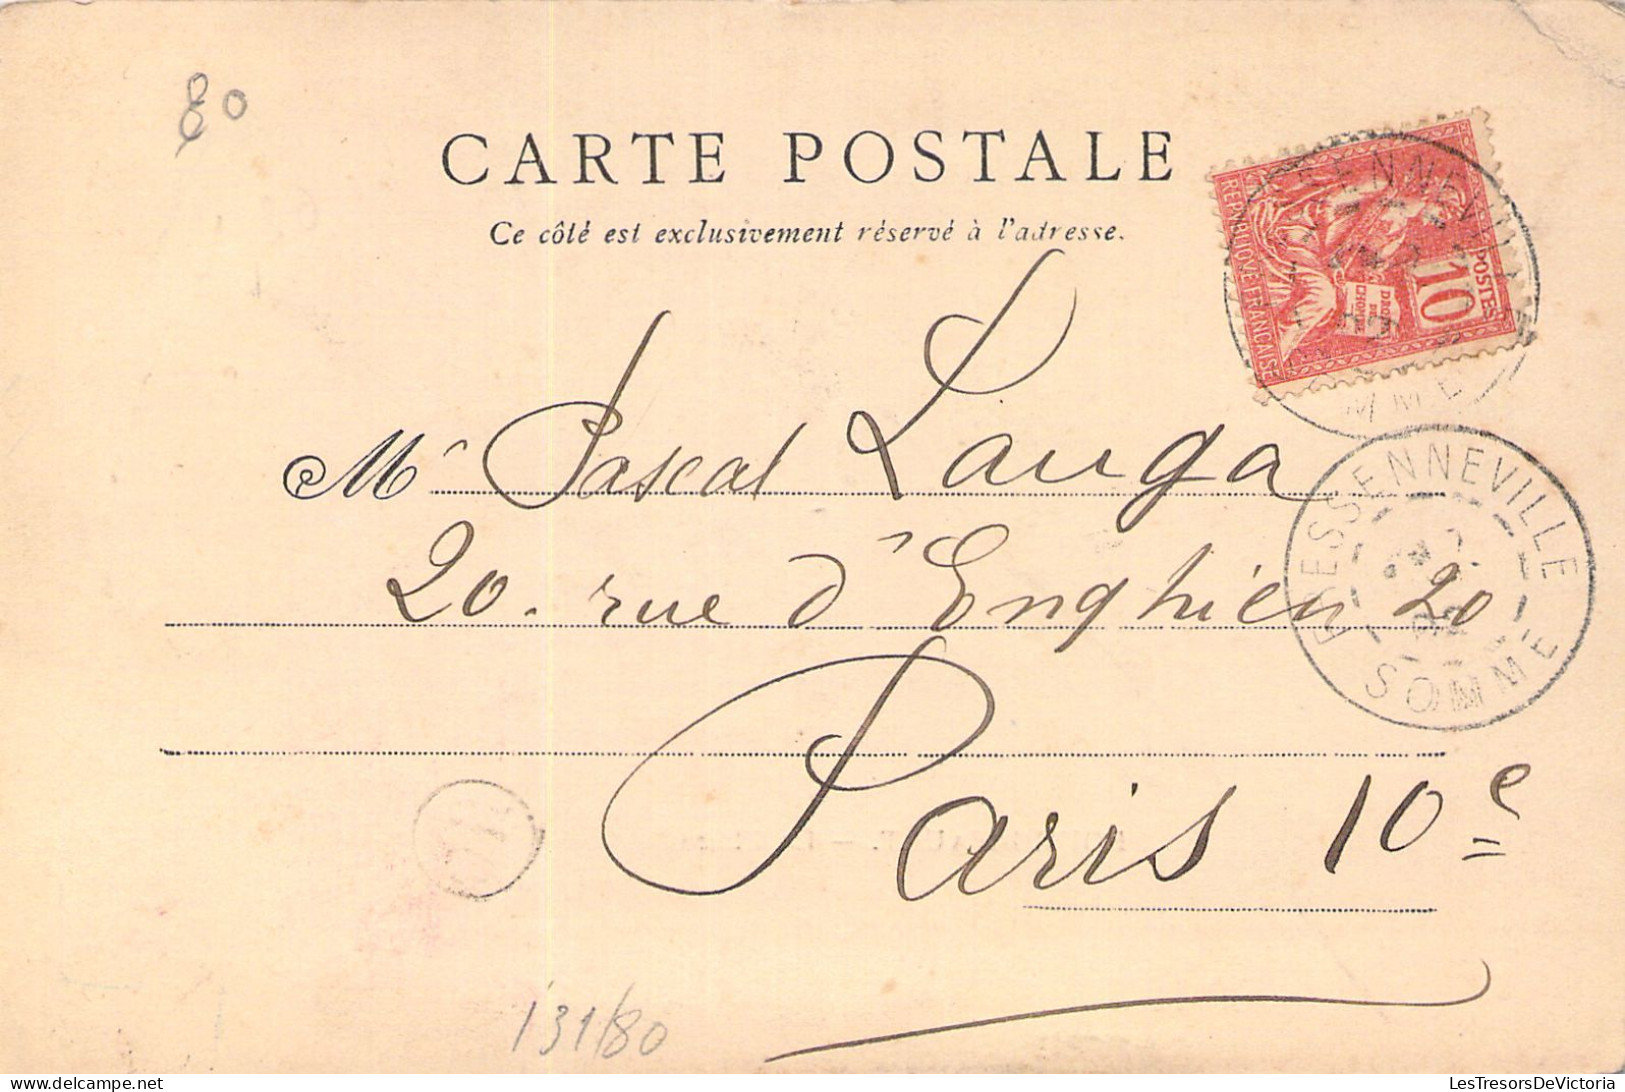 80
CARTE POSTALE
Ce côté est exclusivement réservé à l'adresse.
RÉPUBLIQUE FRANÇAISE
POSTES
10
DROITS DE L'HOMME
Mr Pascal Lauga
20. rue d'Enghien 20
Paris 10e
FRESSENNEVILLE
SOMME
131/80
LesTresorsDeVictoria